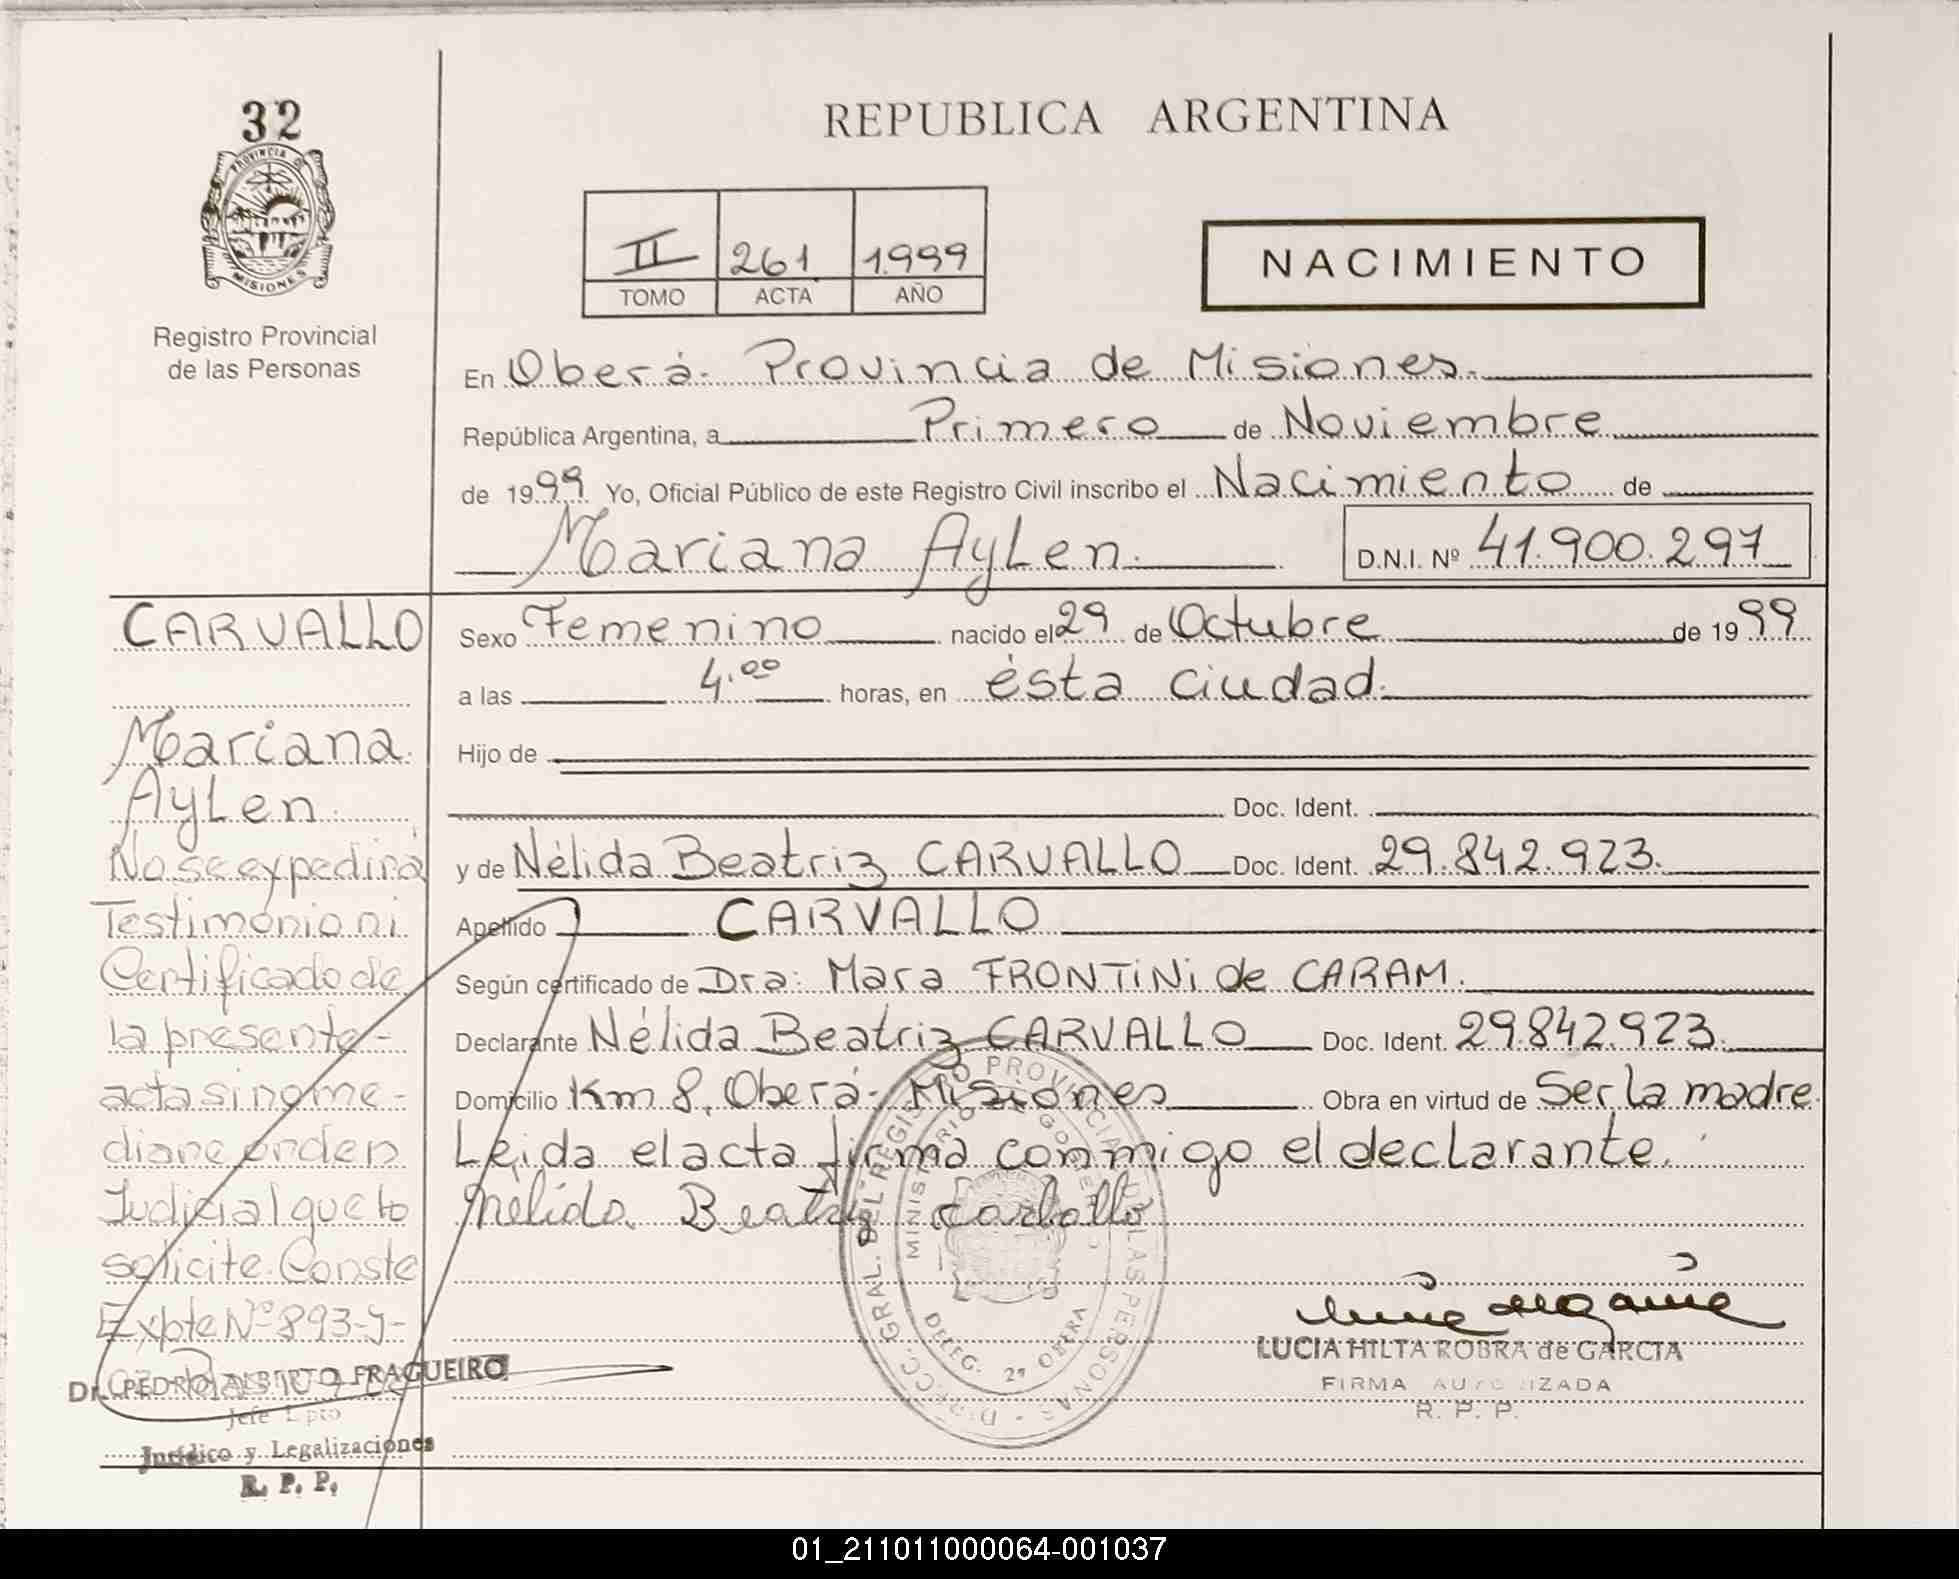 32
PROVINCIA DE
MISIONES
Registro Provincial
de las Personas
REPUBLICA ARGENTINA
II 261 1999
TOMO ACTA AÑO
NACIMIENTO
En Oberá. Provincia de Misiones.
República Argentina, a Primero de Noviembre
de 1999 Yo, Oficial Público de este Registro Civil inscribo el Nacimiento de
Mariana AyLen. D.N.I. Nº 41.900.297
Sexo Femenino nacido el 29 de Octubre de 1999
a las 4.00 horas, en ésta ciudad.
Hijo de
Doc. Ident.
y de Nélida Beatriz CARVALLO Doc. Ident. 29.842.923.
Apellido CARVALLO
Según certificado de Dra: Mara FRONTINI de CARAM.
Declarante Nélida Beatriz CARVALLO Doc. Ident. 29.842.923.
Domicilio Km 8, Oberá- Misiones Obra en virtud de Ser la madre
Leida el acta firma conmigo el declarante.
Nélida Beatriz Carballo
LUCIA HILTA ROBRA de GARCIA
FIRMA AUTORIZADA
R. P. P.
CARVALLO
Mariana
AyLen
No se expedirá
Testimonio ni
Certificado de
la presente
acta si no me-
diare orden
Judicial que lo
solicite. Conste
Expte Nº 893-J-
Dr. PEDRO ALBERTO FRAGUEIRO
Jefe Dpto
Jurídico y Legalizaciones
R. P. P.
DIRECC. GRAL. DEL REGISTRO PROVINCIAL DE LAS PERSONAS
MINISTERIO DE GOBIERNO
DELEG. 2ª OBERA
01_211011000064-001037